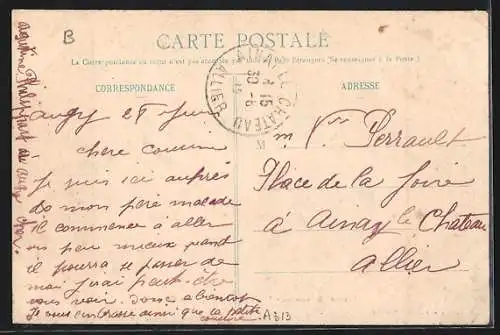 B
CARTE POSTALE
La Correspondance au recto n'est pas acceptée par tous les Pays Étrangers (Se renseigner à la Poste.)
CORRESPONDANCE
ADRESSE
AINAY-LE-CHATEAU
ALLIER
15
30-6
augy 28 Juin
chère cousine
Je suis ici auprès
de mon père malade
il commence à aller
un peu mieux quand
il pourra se passer de
moi j'irai peut-être
vous voir. Donc a bientot
Je vous embrasse ainsi que la petite
cousine
A 313
Vve Perrault
Place de la foire
à Ainay le Chateau
Allier
augy cher